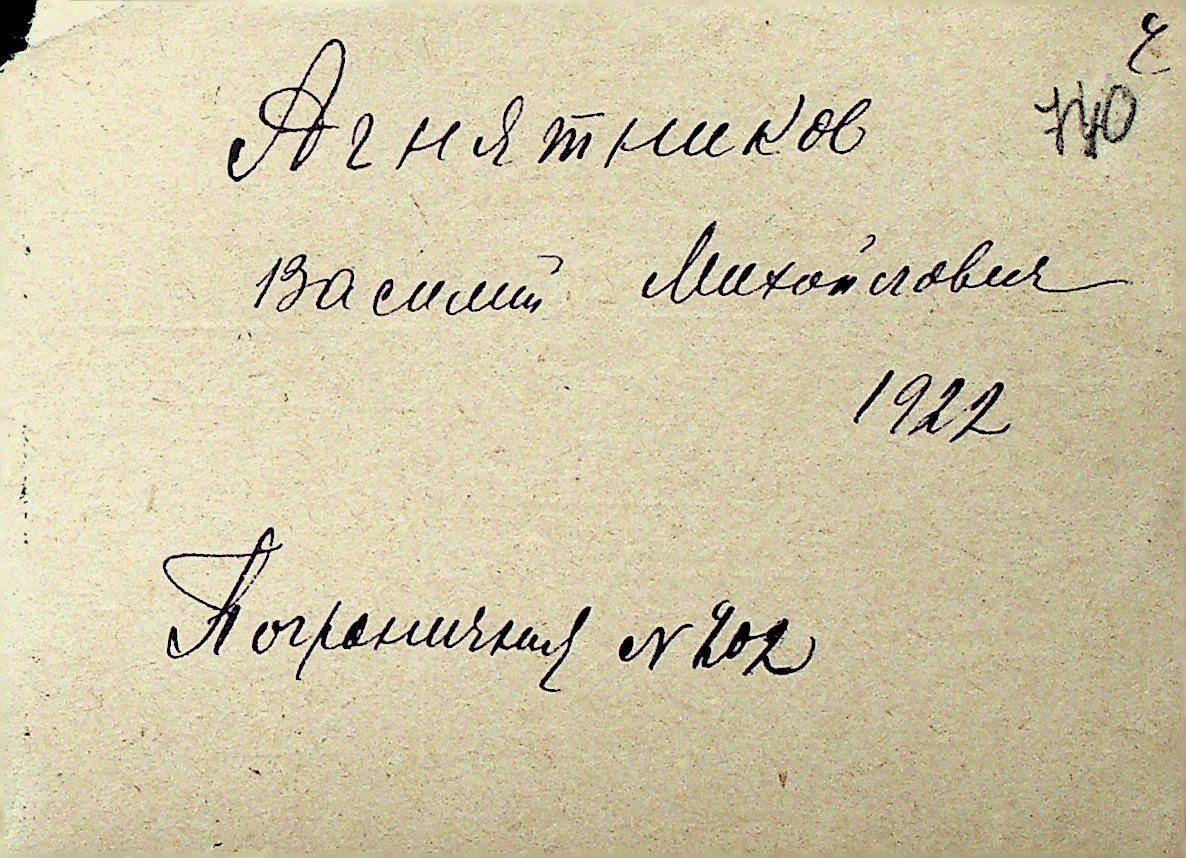 ч
740
Агнятников
Василий Михайлович
1922
Пограничная № 202